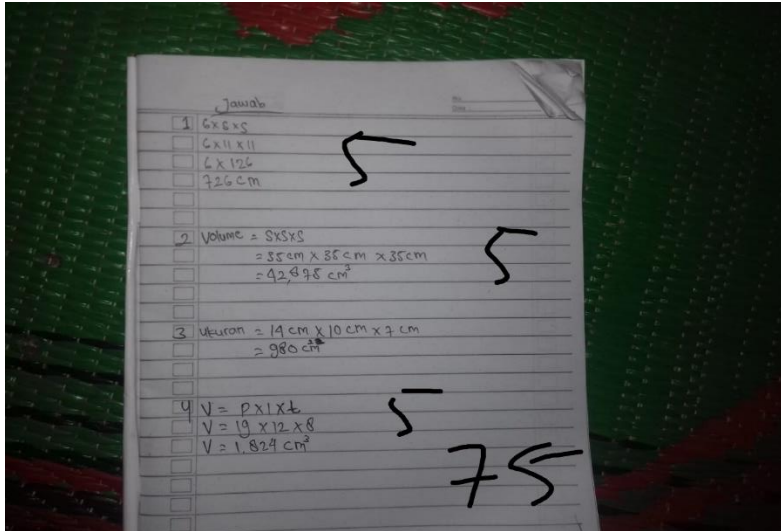 Jawab
No
Date
1 6xsxs
6x11x11
6x126
726 cm
5
2 Volume = sxsxs
= 35 cm x 35 cm x 35cm
= 42,875 cm³
5
3 Ukuran = 14 cm x 10 cm x 7 cm
= 980 cm³
4 V = pxlxt
V = 19 x 12 x 8
V = 1.824 cm³
5
75